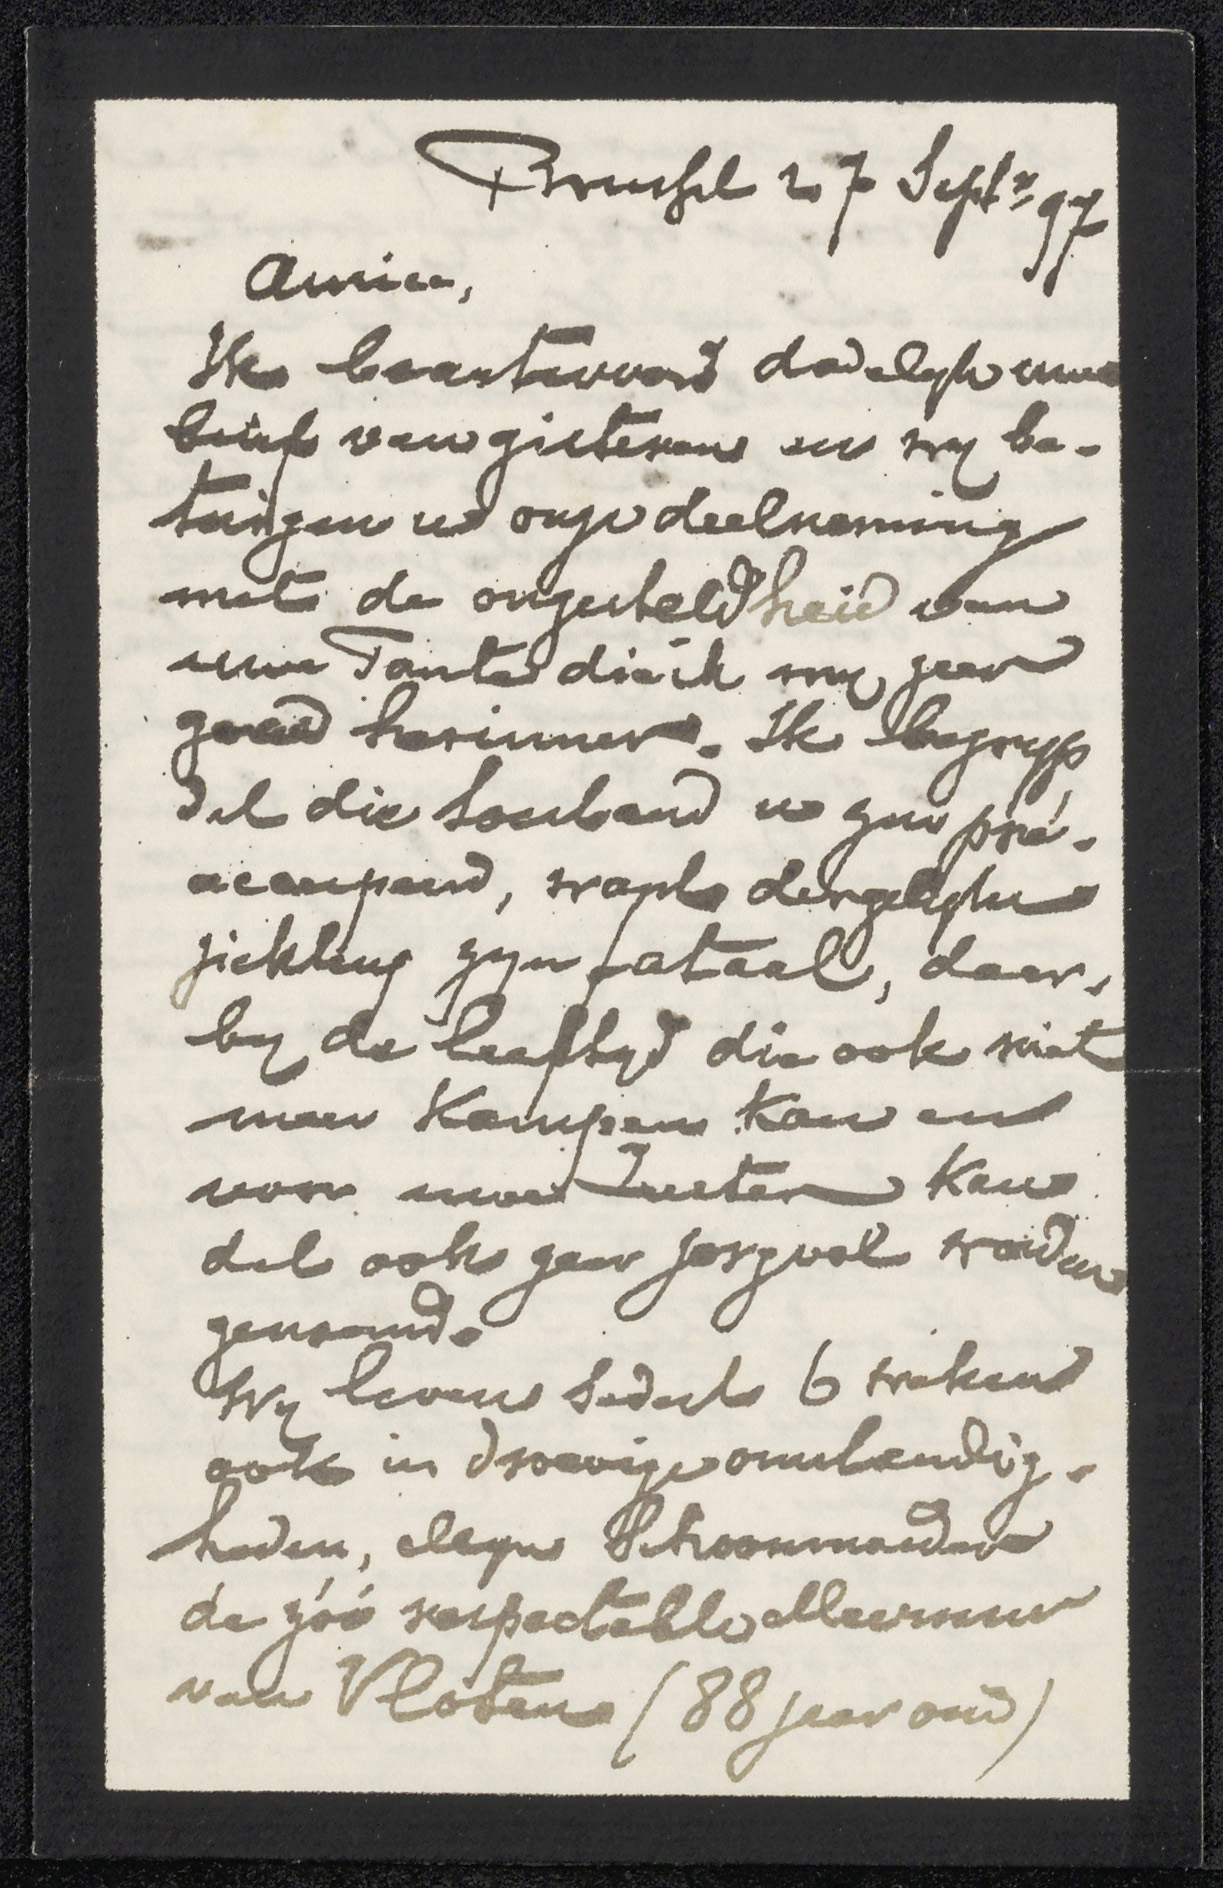 Brussel 27 Septr 97
Amice,
Ik beantwoord dadelyk uwe
brief van gisteren en wy be-
tuigen u onze deelneming
met de ongesteldheid van
uwe Tante die ik my zeer
goed herinner. Ik begryp
dat die toestand u zeer pré-
occupeerd, want dergelyke
ziekten zyn fataal, daar-
by de leeftyd die ook niet
meer kampen kan en
voor uwe Zuster kan
dat ook zeer zorgvol worden
genoemd.
Wy leven sedert 6 weken
ook in droevige omstandig-
heden, Myn Schoonmoeder
de zóó respectable Mevrouw
van Vloten (88 jaar oud)